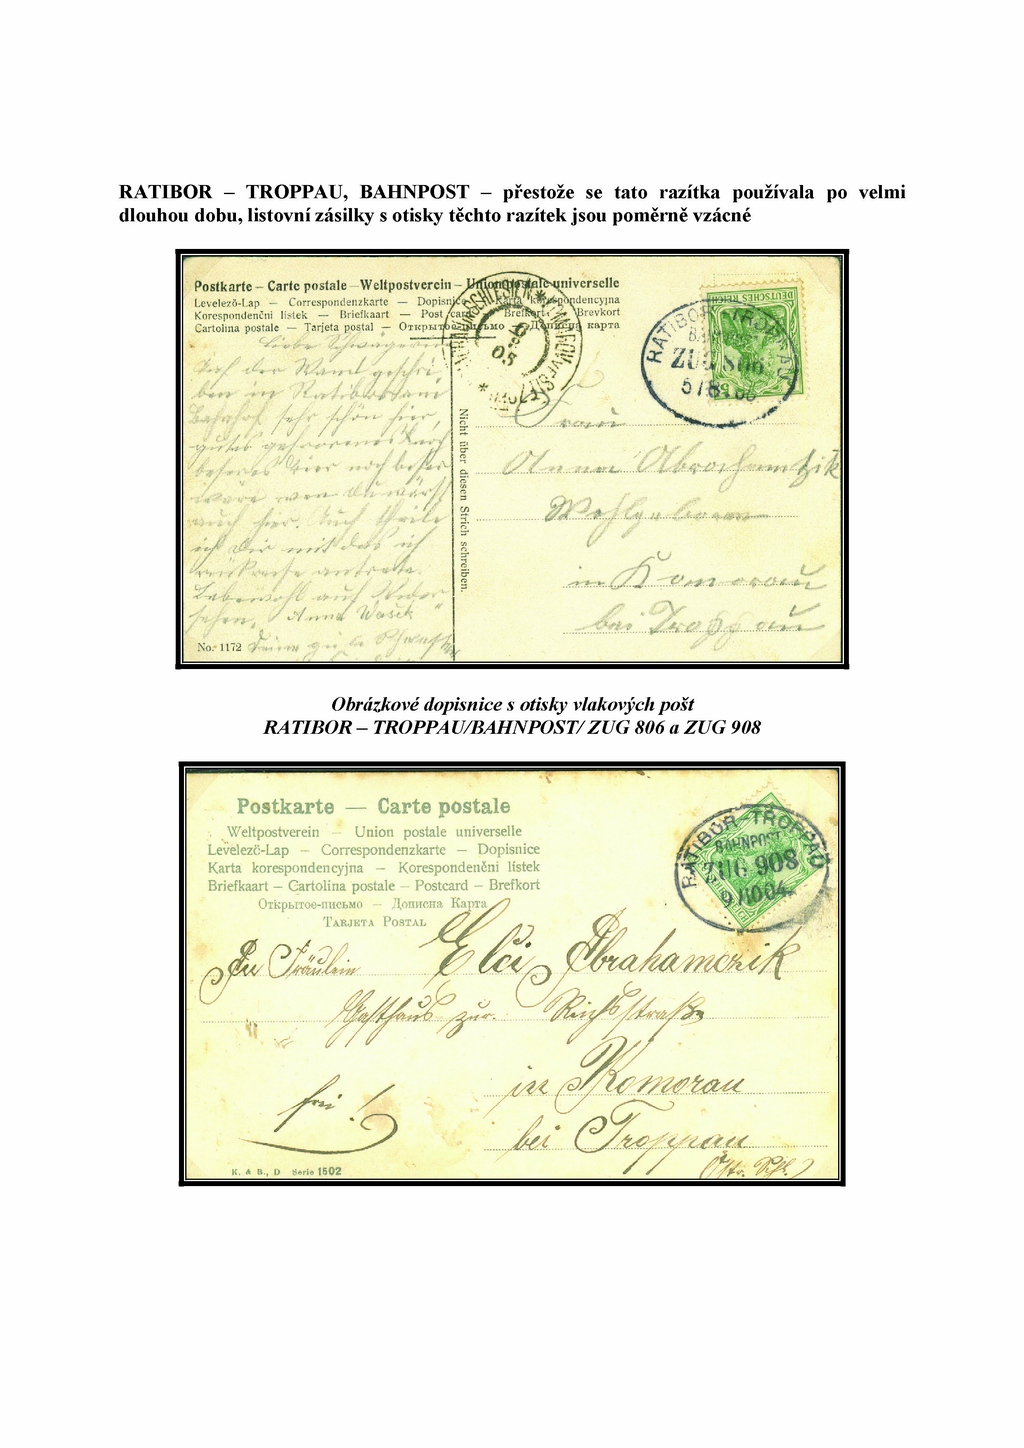 RATIBOR – TROPPAU, BAHNPOST – přestože se tato razítka používala po velmi
dlouhou dobu, listovní zásilky s otisky těchto razítek jsou poměrně vzácné
Postkarte – Carte postale – Weltpostverein – Union postale universelle
Levelező-Lap — Correspondenzkarte — Dopisnice — Karta korespondencyjna
Korespondenční lístek — Briefkaart — Post card — Brefkort — Brevkort
Cartolina postale — Tarjeta postal — Открытое письмо — Дописна карта
DEUTSCHES REICH
RATIBOR TROPPAU
ZUG 806
Liebe Schwägerin
ben in Ratibor am
Bahnhof sehr schön hier,
wäre wen du wärst
auch hier. Auch theile
ich Dir mit das ich
Rückreise antrete.
Lebewohl auf Wieder
sehen, Anna Wasek
Nicht über diesen Strich schreiben.
Frau
Anna Abrahamtzik
Wohlgeboren
in Komorau
bei Troppau
No. 1172
Obrázkové dopisnice s otisky vlakových pošt
RATIBOR – TROPPAU/BAHNPOST/ ZUG 806 a ZUG 908
Postkarte — Carte postale
Weltpostverein — Union postale universelle
Levelező-Lap — Correspondenzkarte — Dopisnice
Karta korespondencyjna — Korespondenční lístek
Briefkaart — Cartolina postale — Postcard — Brefkort
Открытое-письмо — Дописна Карта
Tarjeta Postal
RATIBOR TROPPAU
BAHNPOST
ZUG 908
An Fräulein Elci Abrahamczik
Gasthaus zur Reichsstraße
in Komorau
frei!
bei Troppau
Östr. Schl.
K. & B., D Serie 1502